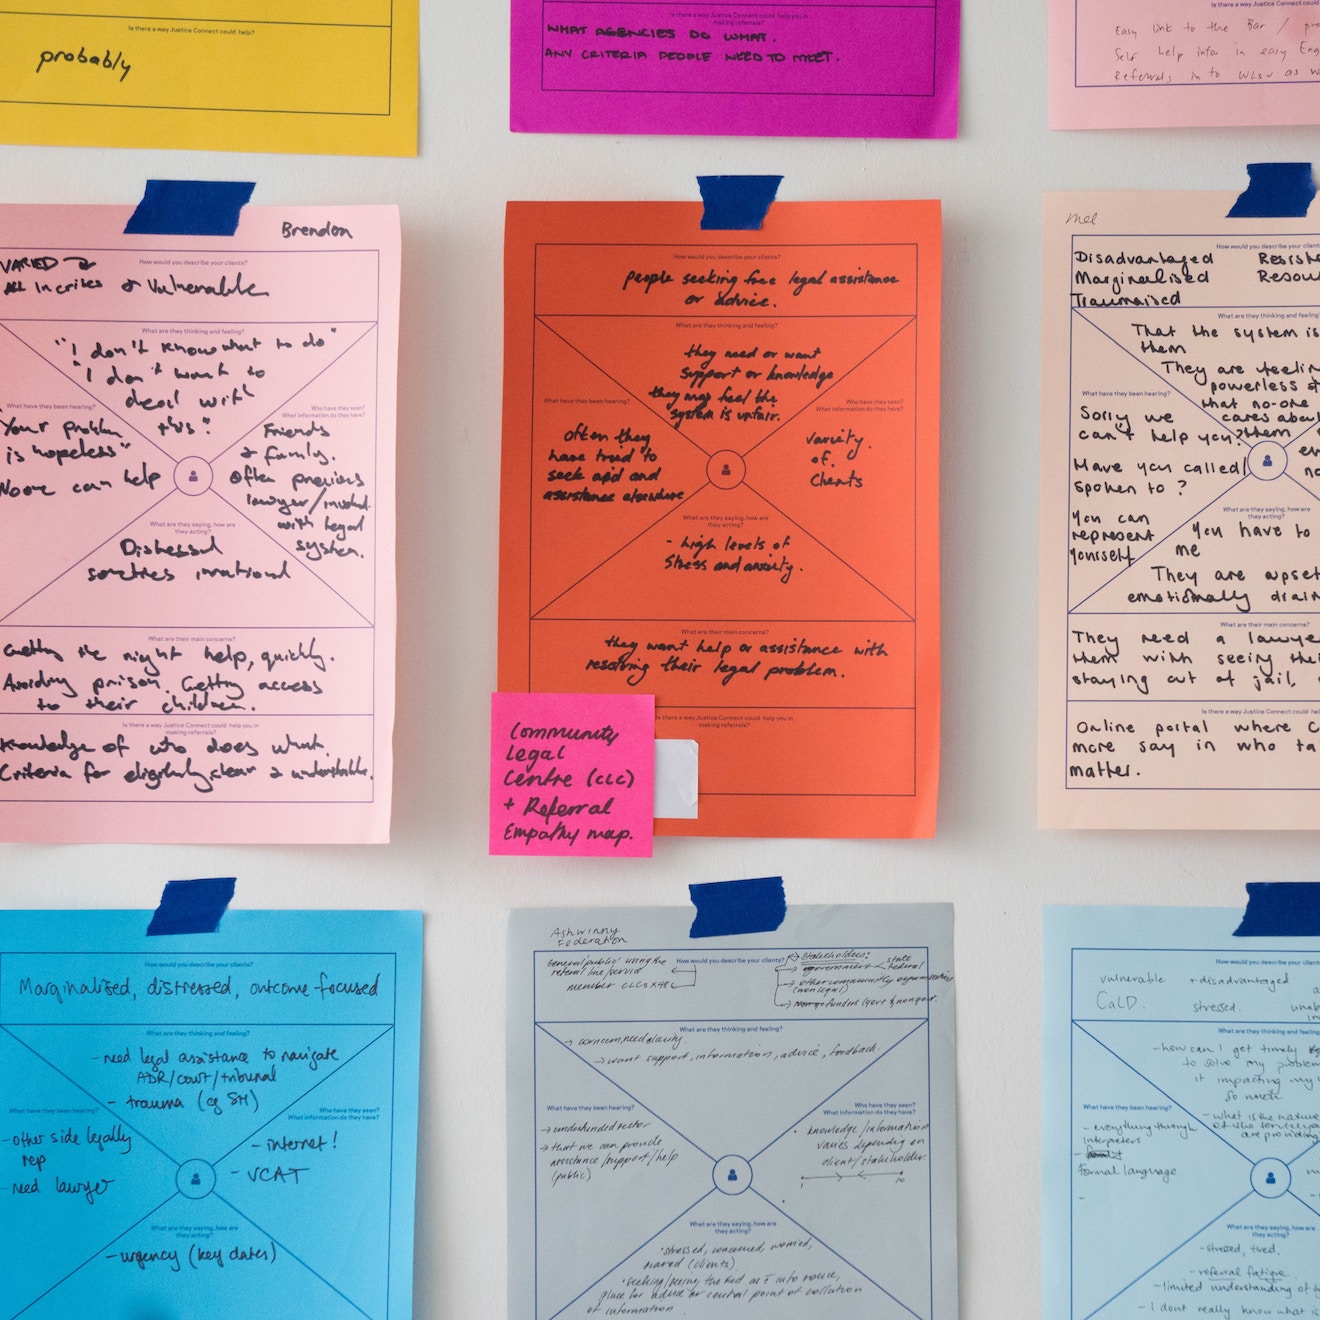 Is there a way Justice Connect could help?
probably
Is there a way Justice Connect could help you in
making referrals?
WHAT AGENCIES DO WHAT.
ANY CRITERIA PEOPLE NEED TO MEET.
Is there a way Justice Connect could
Easy link to the Bar /
Self help infor in easy Eng
Referrals in to WLSV as w
Brendon
How would you describe your clients?
VARIED
ALL In crises & Vulnerable
What are they thinking and feeling?
"I don't know what to do"
"I don't want to
deal with
this"
What have they been hearing?
"Your problem
is hopeless"
No one can help
Who have they seen?
What information do they have?
Friends
& family.
Often previous
lawyer/involved
with legal
system.
What are they saying, how are
they acting?
Distressed
sometimes irrational
What are their main concerns?
Getting the right help, quickly.
Avoiding prison. Getting access
to their children.
Is there a way Justice Connect could help you in
making referrals?
Knowledge of who does what.
Criteria for eligibility clear & understandable.
How would you describe your clients?
people seeking free legal assistance
or advice.
What are they thinking and feeling?
they need or want
support or knowledge
they may feel the
system is unfair.
What have they been hearing?
often they
have tried to
seek aid and
assistance elsewhere
Who have they seen?
What information do they have?
variety
of
Clients
What are they saying, how are
they acting?
- high levels of
stress and anxiety.
What are their main concerns?
they want help or assistance with
resolving their legal problem.
Is there a way Justice Connect could help you in
making referrals?
Community
Legal
Centre (CLC)
+ Referral
Empathy map.
Mel
How would you describe your clients?
Disadvantaged Resista
Marginalised Resou
Traumatised
What are they thinking and feeling?
That the system is
them
They are feelin
powerless
that no-one
cares abou
them
What have they been hearing?
Sorry we
can't help you?
Have you called/
spoken to?
You can
represent
yourself
What are they saying, how are
they acting?
You have to
me
They are upset
emotionally drain
What are their main concerns?
They need a lawye
them with seeing thei
staying out of jail,
Is there a way Justice Connect could help
Online portal where C
more say in who ta
matter.
How would you describe your clients?
Marginalised, distressed, outcome focused
What are they thinking and feeling?
- need legal assistance to navigate
ADR/court/tribunal
- trauma (eg SM)
What have they been hearing?
- other side legally
rep
- need lawyer
Who have they seen?
What information do they have?
- internet!
- VCAT
What are they saying, how are
they acting?
- urgency (key dates)
Ashwinny
Federation
How would you describe your clients?
General public using the
referral line/service
member CLCs x 48
Stakeholders:
government state
federal
other community organisations
(non legal)
funders (gov & nongov.
What are they thinking and feeling?
→ concern, need clarity.
→ want support, information, advice, feedback.
What have they been hearing?
→ underfunded sector
→ that we can provide
assistance/support/help
(public)
Who have they seen?
What information do they have?
knowledge/information
varies depending on
client/stakeholder.
1 10
What are they saying, how are
they acting?
• stressed, concerned, worried,
(clients)
place for advice or central point of collation
of information
How would you describe your clients?
vulnerable + disadvantaged
CaLD. stressed.
What are they thinking and feeling?
- how can I get timely
to solve my problem
it impacting my
so much
- what is the nature
of the service
are providing
What have they been hearing?
- everything through
interpreters
formal language
What are they saying, how are
they acting?
- stressed, tired,
- referral fatigue
- limited understanding of
- I dont really know what is